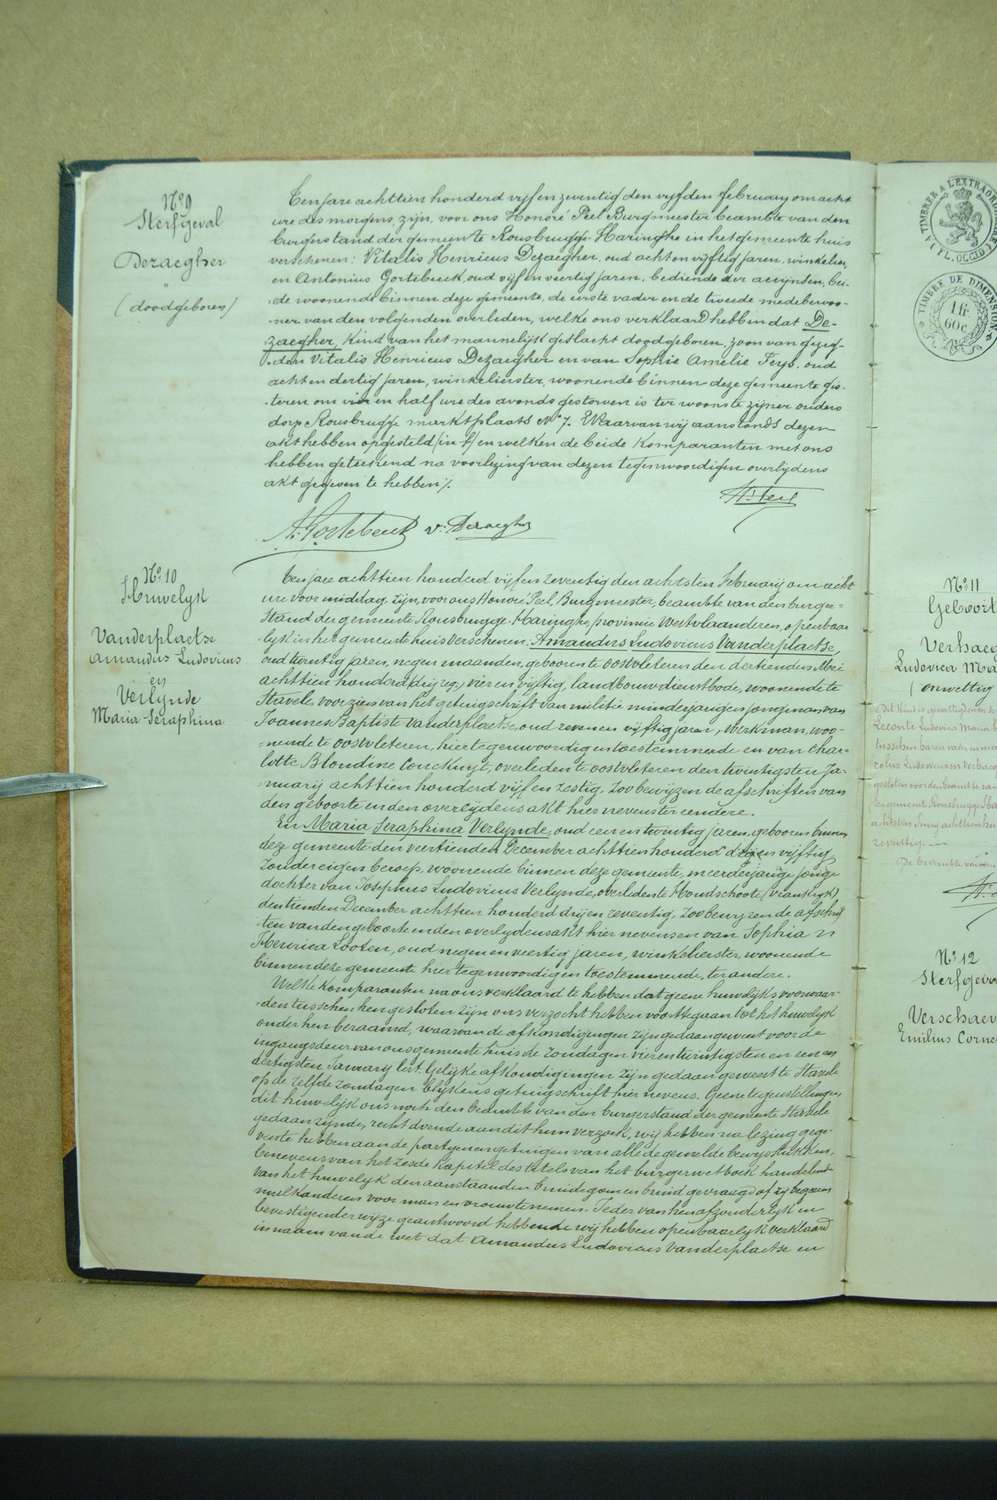 N° 9
Sterfgeval
Dezaegher
(doodgeboren)
Ten jare achttien honderd vijf en zeventig den vijfden february om acht
ure des morgens zijn, voor ons Honoré Peel Burgmeester beambte van den
burgerstand der gemeente Rousbrugge-Haringhe in het gemeente huis
verschenen: Vitalis Henricus Dezaegher, oud acht en vijftig jaren, winkelier
en Antonius Gortebeeck, oud vijf en veertig jaren, bediende der accijnsen, bei-
de woonende binnen deze gemeente, de eerste vader en de tweede medebewoo-
ner van den volgenden overleden, welke ons verklaard hebben dat De-
zaegher, Kind van het mannelijk geslacht doodgeboren, zoon van gezeg-
den Vitalis Henricus Dezaegher en van Sophie Amelie Feys, oud
acht en dertig jaren, winkelierster, woonende binnen deze gemeente gis-
teren om vier en half ure des avonds gestorven is ter woonste zijner ouders
dorp Rousbrugge marktplaats N° 7. Waarvan wij aanstonds dezen
akt hebben opgesteld en welken de beide komparanten met ons
hebben geteekend na voorlezing van dezen tegenwoordigen overlydens
akt gegeven te hebben ./.
H. Peel
A. Gortebeeck v. Dezaegher
N° 10
Huwelyk
Vanderplaetse
Amandus Ludovicus
en
Verlynde
Maria-Seraphina
Ten jare achttien honderd vijf en zeventig den achtsten February om acht
ure voormiddag, zijn, voor ons Honoré Peel, Burgmeester, beambte van den burger-
stand der gemeente Rousbrugge-Haringhe, provincie Westvlaanderen, openbaar-
lyk in het gemeente huis verschenen: Amandus Ludovicus Vanderplaetse,
oud twintig jaren, negen maanden, geboren te oostvleteren den dertienden Mei
achttien honderd vier en vijftig, landbouwdienstbode, woonende te
Stavele, voorzien van het getuigschrift van militie minderjarigen jongman van
Joannes Baptiste Vanderplaetse, oud zeven en vijftig jaren, Werkman, woo-
nende te oostvleteren, hier tegenwoordig en toestemmende en van Char-
lotte Blondine Couckuyt, overleden te oostvleteren den twintigsten Ja-
nuary achttien honderd vijf en zestig, zoo bewijzen de afschriften van
den geboorte en den overlijdens akt hier nevens ter eendere.
En Maria Seraphina Verlynde, oud een en twintig jaren, geboren binnen
deze gemeente den veertienden December achttien honderd drij en vijftig
zonder eigen beroep, woonende binnen deze gemeente, meerderjarige jonge
dochter van Josephus Ludovicus Verlynde, overleden te Hondschoote (Vrankrijk)
den tienden December achttien honderd drij en zeventig, zoo bewyzen de afschrif-
ten van den geboorte en den overlydens akt hier nevens en van Sophia
Henrica Looten, oud negen en veertig jaren, winkelierster, woonende
binnen deze gemeente hier tegenwoordig en toestemmende, ter andere.
Welke komparanten na ons verklaard te hebben dat geene huwelijks voorwaar-
den tusschen hen gesloten zijn ons verzocht hebben voort te gaan tot het huwelijk
onder hen beraamd, waarvan de afkondigingen zijn gedaan geweest voor de
ingangsdeur van ons gemeente huis de zondagen vier en twintigsten en een en
dertigsten January lest. Gelijke afkondigingen zijn gedaan geweest te Stavele
op de zelfde zondagen blijkens getuigschrift hier nevens. Geene tegenstellingen
dit huwelijk ons noch den beambte van den burgerstand der gemeente Stavele
gedaan zijnde, recht doende aan dit hun verzoek, wij hebben na lezing gege-
ven te hebben aan de partyen en getuigen van alle de gemelde bewysstukken,
benevens van het zesde kapittel des titels van het burgerwetboek handelende
van het huwelyk den aanstaanden bruidegom en bruid gevraagd of zij begeeren
malkanderen voor man en vrouw te nemen. Ieder van hen afzonderlyk en
bevestigender wyze geantwoord hebbende wij hebben openbaarlyk verklaard
in naam van de wet dat Amandus Ludovicus Vanderplaetse en
TIMBRE DE DIMENSION
1 fr
60 c
N° 11
Geboort
Verhaeg
Ludovica Ma
(onwettig
N° 12
Sterfgeva
Verschaev
Emilius Corne